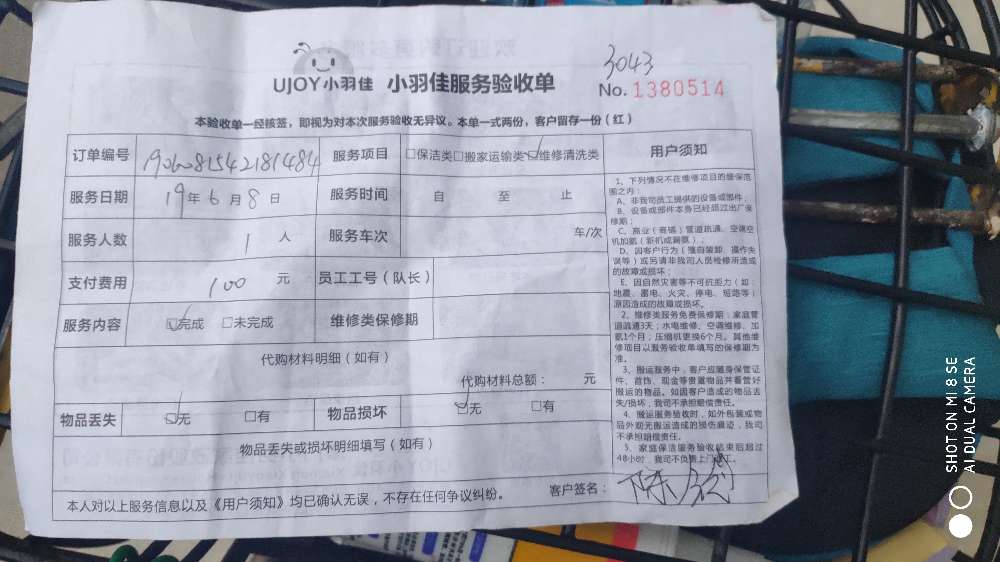 3043
UJOY小羽佳 小羽佳服务验收单 No. 1380514
本验收单一经核签，即视为对本次服务验收无异议。本单一式两份，客户留存一份（红）
订单编号 1906081542181484 服务项目 □保洁类□搬家运输类☑维修清洗类
服务日期 19年 6 月 8 日 服务时间 自 至 止
服务人数 1 人 服务车次 车/次
支付费用 100 元 员工工号（队长）
服务内容 ☑完成 □未完成 维修类保修期
代购材料明细（如有）
代购材料总额： 元
物品丢失 ☑无 □有 物品损坏 ☑无 □有
物品丢失或损坏明细填写（如有）
本人对以上服务信息以及《用户须知》均已确认无误，不存在任何争议纠纷。 客户签名：
用户须知
1、下列情况不在维修项目的维保范
围之内：
A、非我司员工提供的设备或部件；
B、设备或部件本身已经超过出厂保
修期；
C、商业（商铺）管道疏通、空调空
机加氟（新机或漏氟）；
D、因客户行为（擅自装卸、操作失
误等）或另请非我司人员检修所造成
的故障或损坏；
E、因自然灾害等不可抗拒力（如：
地震、蓄电、火灾、停电、短路等）
原因造成的故障或损坏。
2、维修类服务免费保修期：家庭管
道疏通3天；水电维修、空调维修、加
氟1个月；压缩机更换6个月。其他维
修项目以服务验收单填写的保修期为
准。
3、搬运服务中，客户应随身保管证
件、首饰、现金等贵重物品并看管好
搬运的物品。如因客户造成的物品丢
失/损坏，我司不承担赔偿责任。
4、搬运服务验收时，如外包装或物
品外观无搬运造成的损伤痕迹，我司
不承担赔偿责任。
5、家庭保洁服务验收结束后超过
48小时，我司不负责上门返工。
SHOT ON MI 8 SE
AI DUAL CAMERA